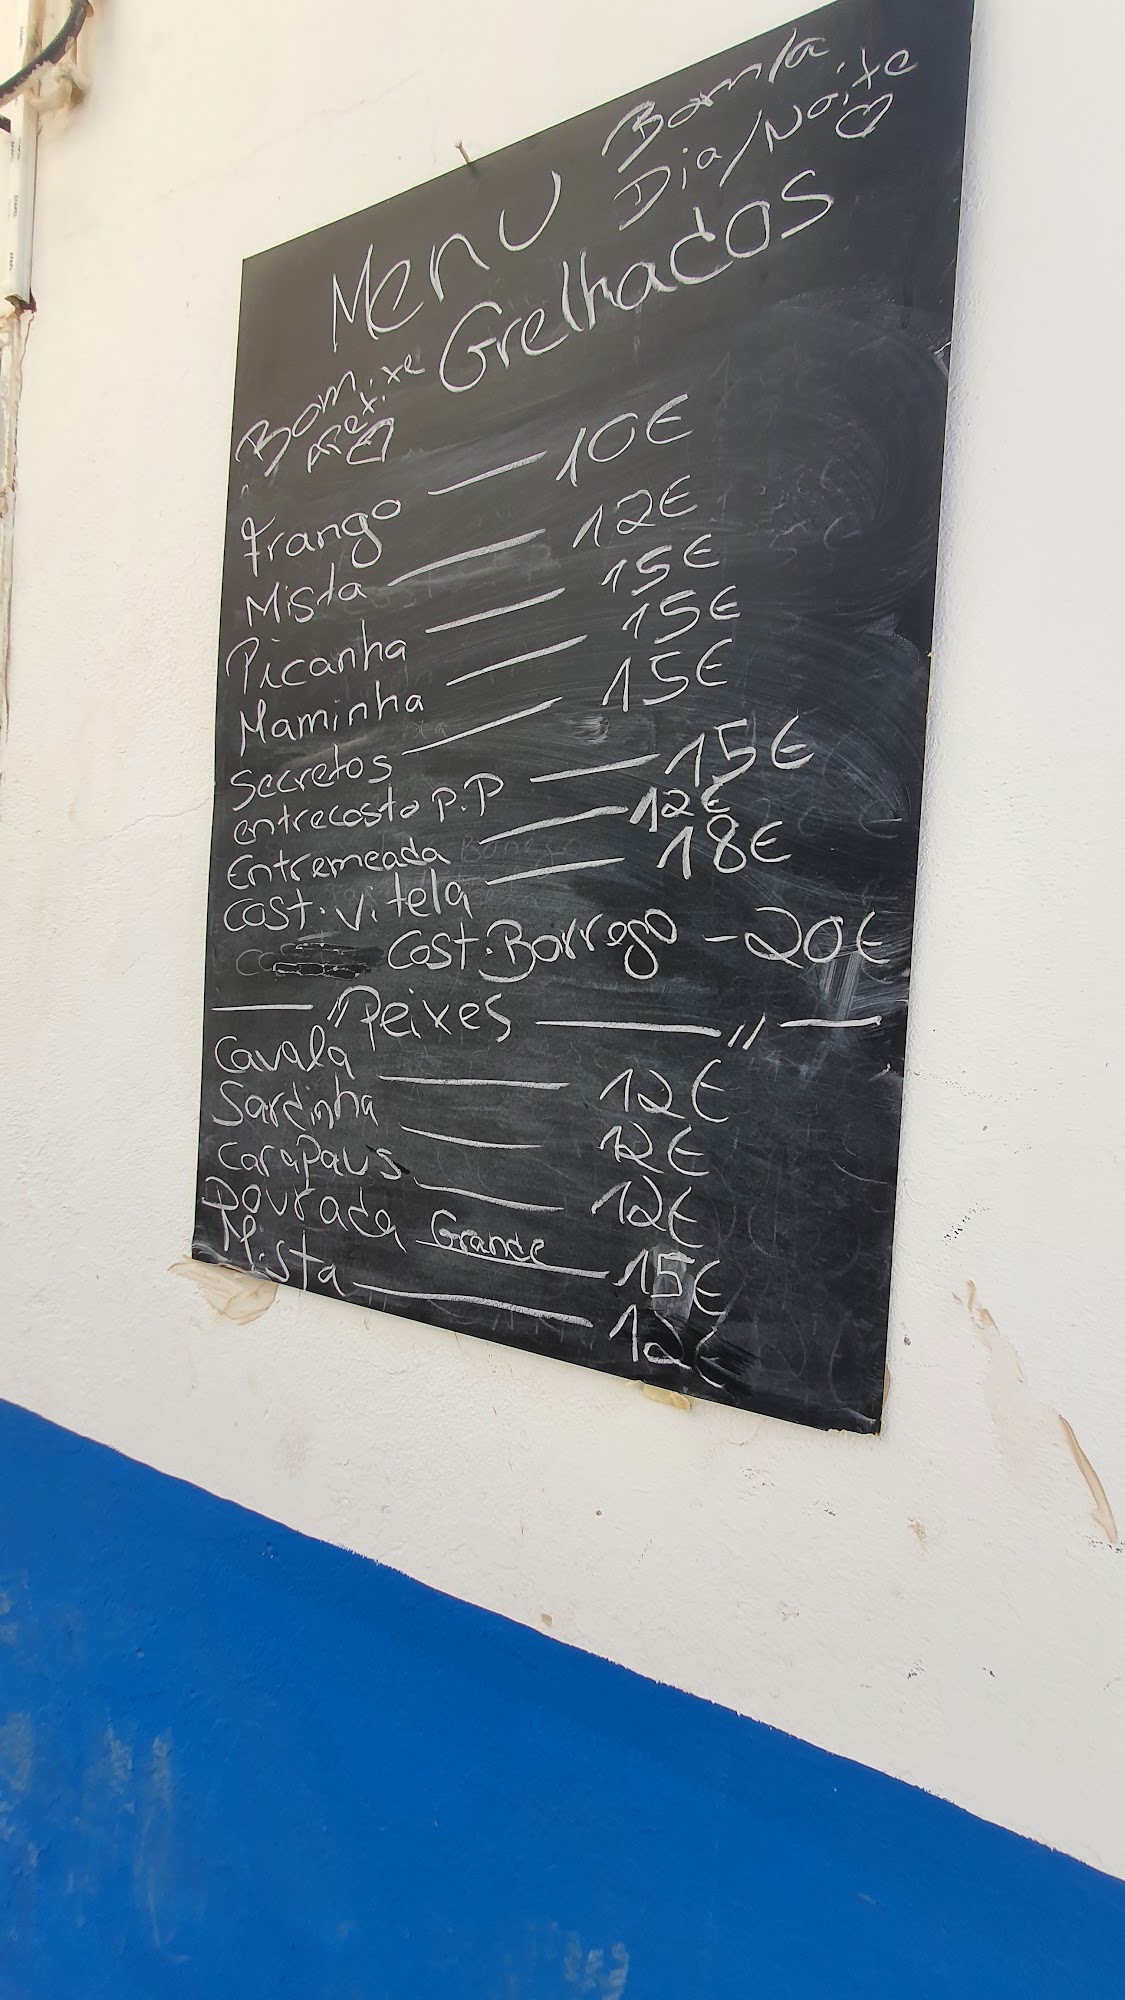 Menu
Dia/Noite
Grelhados
Bom
Frango — 10€
Mista — 12€
Picanha — 15€
Maminha — 15€
Secretos — 15€
entrecosto P.P — 15€
Entremeada — 12€
Cost. Vitela — 18€
Cost. Borrego - 20€
— " Peixes — " —
Cavala — 12€
Sardinha — 12€
Carapaus — 12€
Dourada Grande — 15€
Mista — 12€